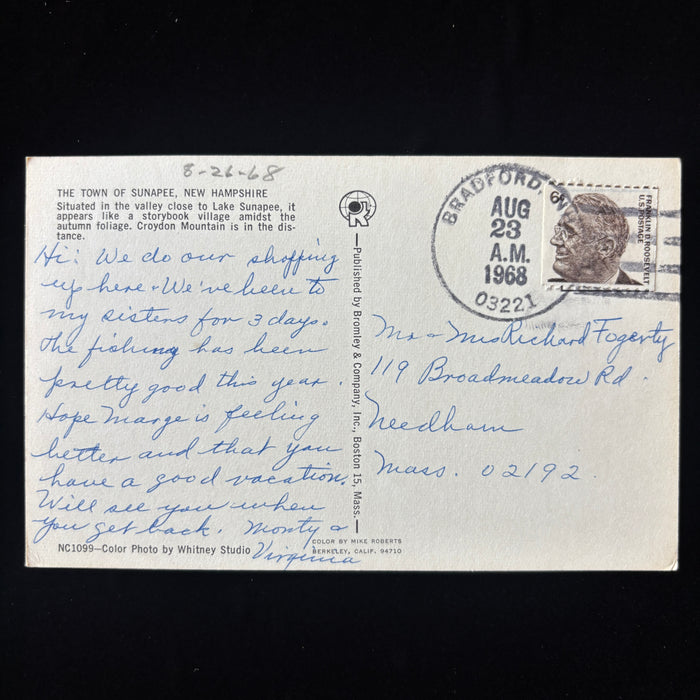 8-26-68
THE TOWN OF SUNAPEE, NEW HAMPSHIRE
Situated in the valley close to Lake Sunapee, it
appears like a storybook village amidst the
autumn foliage. Croydon Mountain is in the dis-
tance.
Hi: We do our shopping
up here. We've been to
my sisters for 3 days.
The fishing has been
pretty good this year.
Hope Marge is feeling
better and that you
have a good vacation.
Will see you when
you get back. Monty &
Virginia
NC1099—Color Photo by Whitney Studio
Published by Bromley & Company, Inc., Boston 15, Mass.
COLOR BY MIKE ROBERTS
BERKELEY, CALIF. 94710
BRADFORD, N
AUG
23
A.M.
1968
03221
6¢
FRANKLIN D. ROOSEVELT
U.S. POSTAGE
Mr & Mrs Richard Fogerty
119 Broadmeadow Rd.
Needham
Mass. 02192